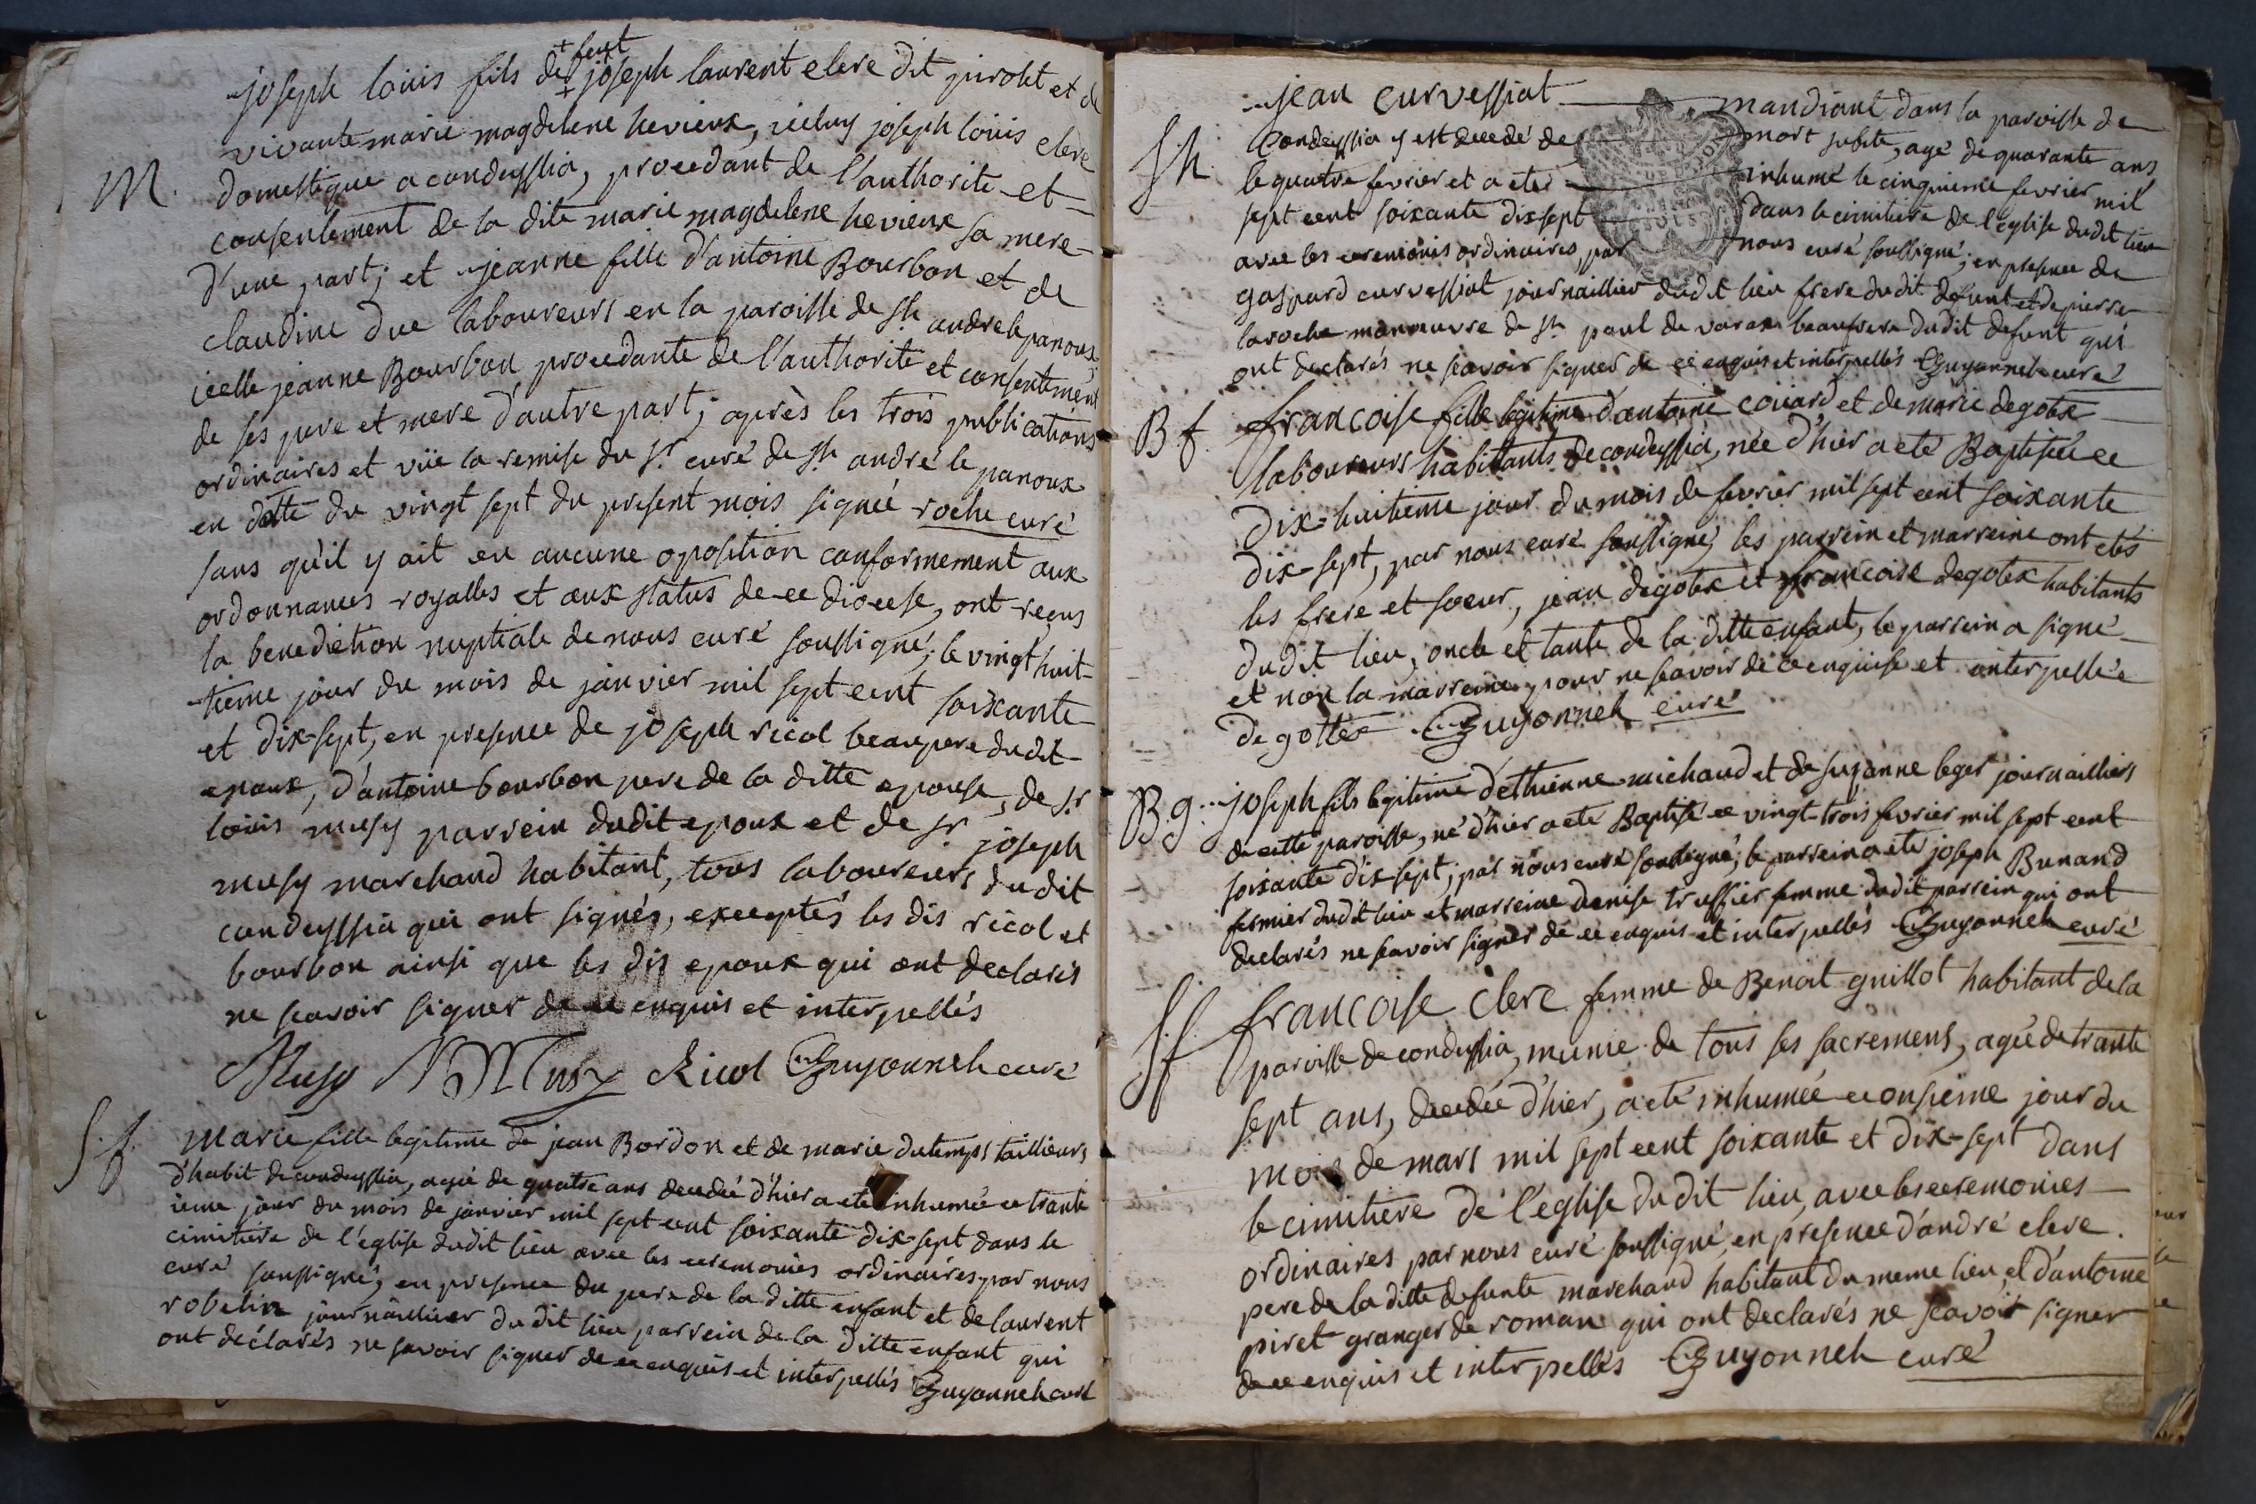 + feut
joseph loüis fils de + joseph laurent clerc dit pirolet et de
vivante marie magdelene hevieux, iceluy joseph loüis clerc
M. domestique a condeyssia, procedant de l'authorite et
consentement de la dite marie magdelene hevieux sa mere
d'une part; et jeanne fille d'antoine Bourbon et de
claudine due laboureurs en la paroisse de st andre le panoux
icelle jeanne Bourbon procedante de l'authorite et consentement
de ses pere et mere d'autre part; après les trois publications
ordinaires et vüe la remise du sr curé de st andré le panoux
en datte du vingt sept du present mois signée roche curé
sans qu'il y ait eu aucune oposition conformement aux
ordonnances royalles et aux status de ce diocese, ont reçus
la benediction nuptiale de nous curé soussigné; le vingt huit-
-tieme jour du mois de janvier mil sept cent soixante
et dix-sept, en presence de joseph ricol beaupere dudit
epoux, d'antoine bourbon pere de la ditte epouse, de sr
loüis musy parrein dudit epoux et de sr joseph
musy marchand habitant, tous laboureurs dudit
condeyssia qui ont signés, exceptés les dis ricol et
bourbon ainsi que les dis epoux qui ont declarés
ne scavoir signer de ce enquis et interpellés
Musy Musy Ricol Guyonneh curé
S. f. marie fille legitime de jean Bordon et de marie dutemps taillieurs
d'habit de condeyssia, agée de quatre ans decedée d'hier a eté inhumée ce trante
ieme jour du mois de janvier mil sept cent soixante dix-sept dans le
cimitiere de l'église dudit lieu avec les ceremonies ordinaires par nous
curé soussigné, en presence du pere de la ditte enfant et de laurent
robelin journaillier dudit lieu parrein de la ditte enfant qui
ont déclarés ne savoir signer de ce enquis et interpellés Guyonneh curé
jean curvessiat mandiant dans la paroisse de
S h. Condeyssia y est decedé de mort subite, agé de quarante ans
le quatre fevrier et a eté inhumé le cinquieme fevrier mil
sept cent soixante dix sept dans le cimitiere de l'église dudit lieu
avec les ceremonies ordinaires, par nous curé soussigné; en presence de
gaspard curvessiat journaillier dudit lieu frere dudit defunt et de pierre
laroche manœuvre de st paul de varax beaufrere dudit defunt qui
ont declarés ne scavoir signer de ce enquis et interpellés Guyonneh curé
B f. francoise fille legitime d'antoine coüard et de marie degotex
laboureurs habitants de condeyssia, née d'hier a eté Baptisée ce
dix-huitieme jour du mois de fevrier mil sept cent soixante
dix-sept, par nous curé soussigné, les parrein et marreine ont etés
les frere et soeur, jean degotex et francoise degotex habitants
dudit lieu, oncle et tante de la ditte enfant, le parrein a signé
et non la marreine pour ne scavoir de ce enquise et interpellée
degottex Guyonneh curé
B g. joseph fils legitime d'ethienne michaud et de suzanne leger journailliers
de cette paroisse, né d'hier a eté Baptisé ce vingt-trois fevrier mil sept cent
soixante dix-sept, par nous curé soussigné; le parrein a eté joseph Bunand
fermier dudit lieu et marreine denise truffier femme dudit parrein qui ont
declarés ne scavoir signer de ce enquis et interpellés Guyonneh curé
S. f. francoise clerc femme de Benoit guillot habitant de la
paroisse de condeyssia, munie de tous ses sacremens, agée de trante
sept ans, decedée d'hier, a eté inhumée ce onsieme jour du
mois de mars mil sept cent soixante et dix-sept dans
le cimitiere de l'église dudit lieu, avec les ceremonies
ordinaires par nous curé soussigné, en presence d'andré clerc
pere de la ditte defunte marchand habitant du meme lieu, et d'antoine
piret granger de roman qui ont declarés ne scavoir signer
de ce enquis et interpellés Guyonneh curé